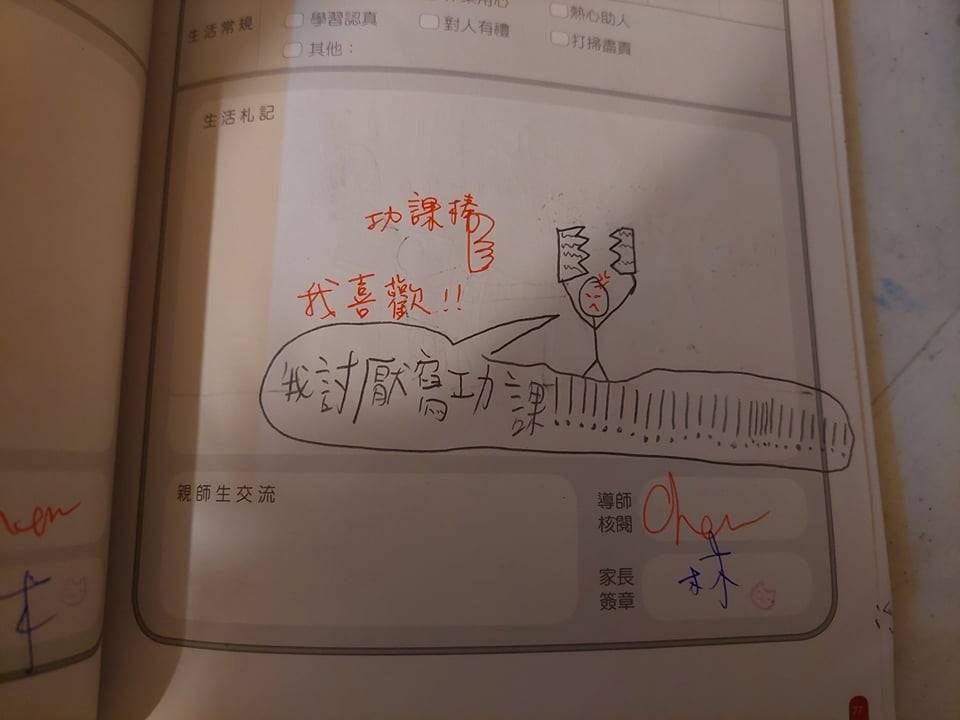 生活常規
學習認真
對人有禮
熱心助人
其他：
打掃盡責
生活札記
功課棒
我喜歡!!
我討厭寫功課!!!!!!!!!!!!!!!!!!!!!!!!!!!!!!
親師生交流
導師
核閱
Chen
家長
簽章
林
77